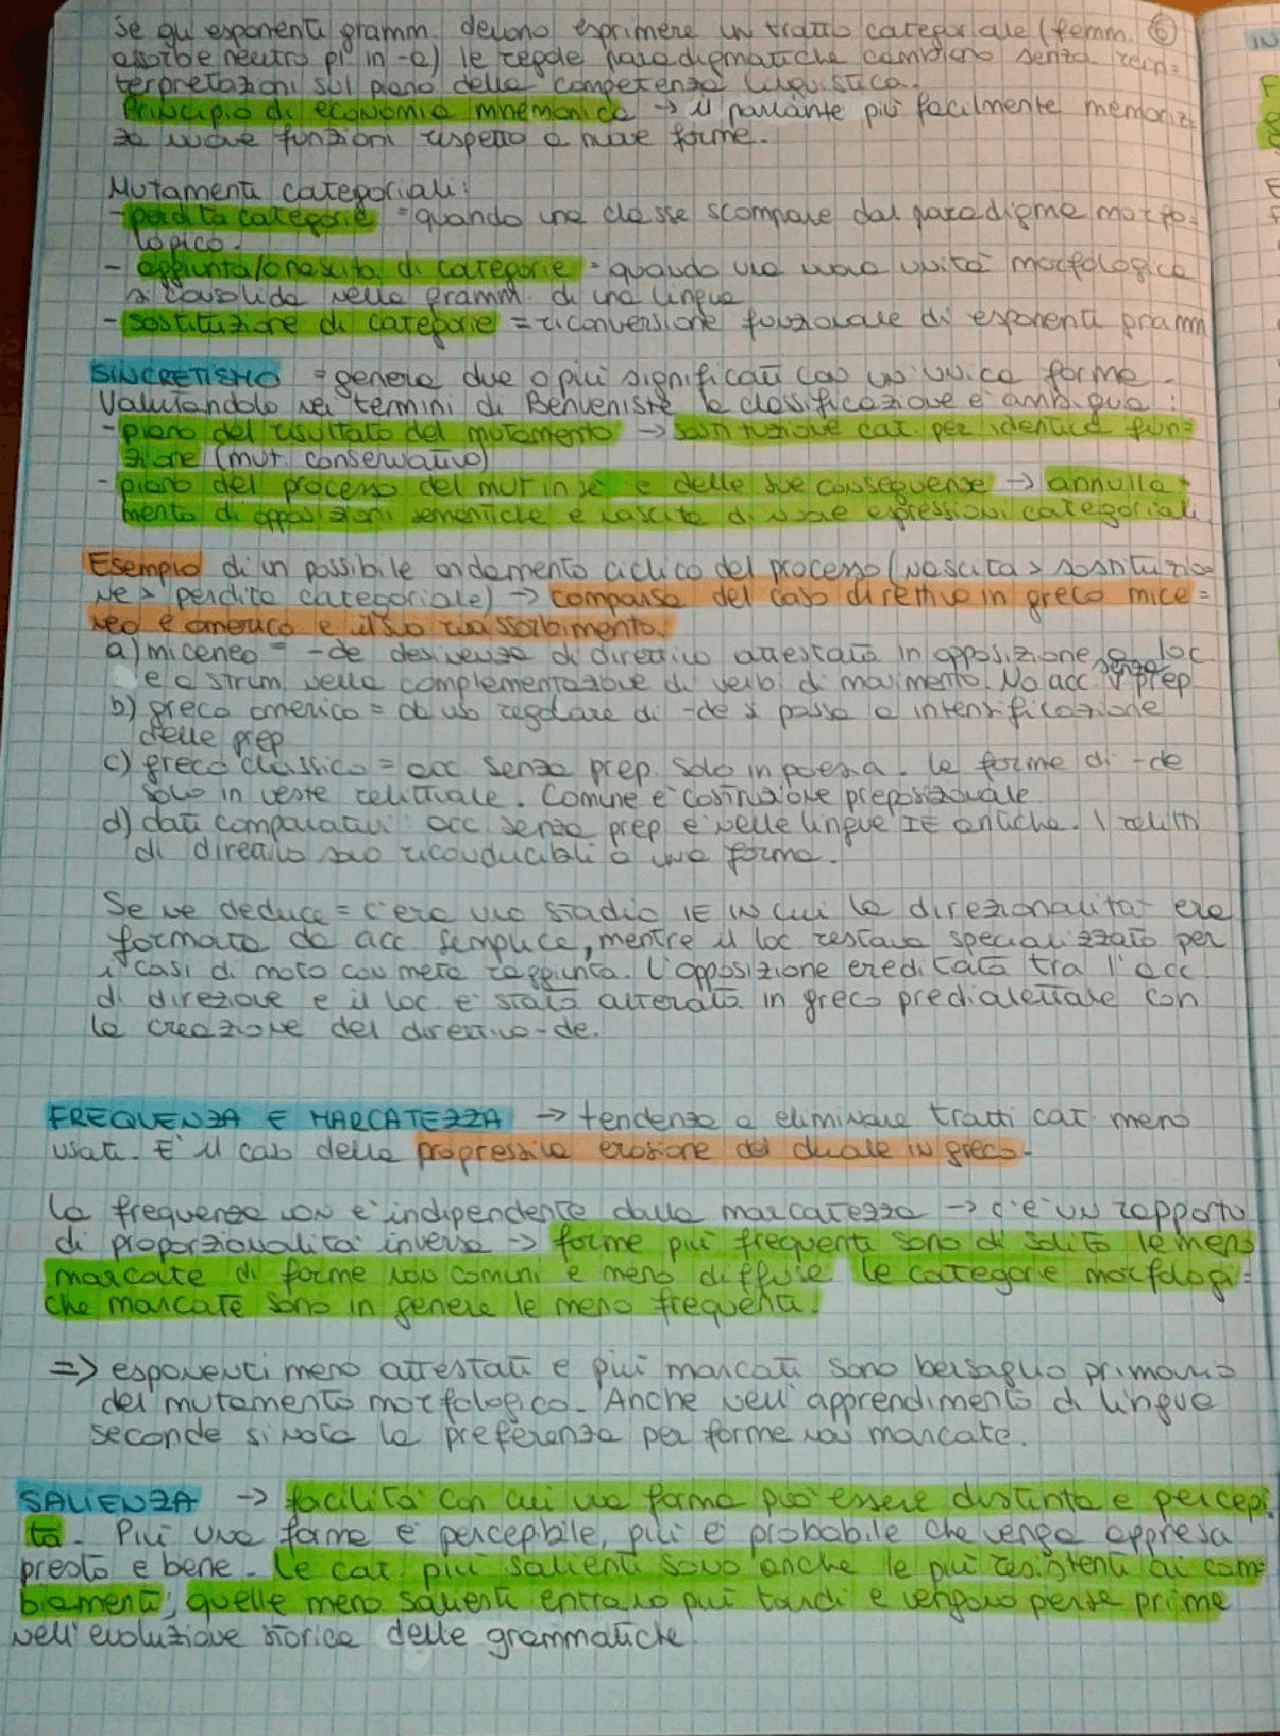 Se gli esponenti gramm. devono esprimere un tratto categoriale (femm. 6
assorbe neutro pl in -a) le regole paradigmatiche cambiano senza rein=
terpretazioni sul piano della competenza linguistica.
Principio di economia mnemonica → il parlante più facilmente memoriz=
za nuove funzioni rispetto a nuove forme.
Mutamenti categoriali:
- perdita categorie = quando una classe scompare dal paradigma morfo=
logico.
- aggiunta/o nascita di categorie = quando una nuova unità morfologica
si consolida nella gramm. di una lingua
- sostituzione di categorie = riconversione funzionale di esponenti gramm
SINCRETISMO = genera due o più significati con un'unica forma.
Valutandolo nei termini di Benveniste la classificazione è ambigua:
- piano del risultato del mutamento → sostituzione cat. per identica fun=
zione (mut. conservativo)
- piano del processo del mut in sé e delle sue conseguenze → annulla=
mento di opposizioni semantiche e nascita di nuove espressioni categoriali
Esempio di un possibile andamento ciclico del processo (nascita > sostituzio=
ne > perdita categoriale) → comparsa del caso direttivo in greco mice=
neo e omerico e il suo riassorbimento.
a) miceneo = -de desinenza di direttivo attestata in opposizione a loc
e a strum nella complementazione di verbi di movimento. No acc senza prep
b) greco omerico = da uso regolare di -de si passa a intensificazione
delle prep
c) greco classico = acc. senza prep. solo in poesia. Le forme di -de
solo in veste relittuale. Comune è costruzione preposizionale
d) dati comparativi: acc senza prep è nelle lingue IE antiche. I relitti
di direttivo sono riconducibili a una forma.
Se ne deduce = c'era uno stadio IE in cui la direzionalità era
formata da acc semplice, mentre il loc restava specializzato per
i casi di moto con meta raggiunta. L'opposizione ereditata tra l'acc
di direzione e il loc è stata alterata in greco predialettale con
la creazione del direttivo -de.
FREQUENZA E MARCATEZZA → tendenza a eliminare tratti cat. meno
usati. E' il caso della progressiva erosione del duale in greco.
La frequenza non è indipendente dalla marcatezza → c'è un rapporto
di proporzionalità inversa → forme più frequenti sono di solito le meno
marcate di forme non comuni e meno diffuse le categorie morfologi=
che marcate sono in genere le meno frequenti.
=> esponenti meno attestati e più marcati sono bersaglio primario
del mutamento morfologico. Anche nell'apprendimento di lingue
seconde si nota la preferenza per forme non marcate.
SALIENZA → facilità con cui una forma può essere distinta e percepi
ta. Più una forma è percepibile, più è probabile che venga appresa
presto e bene. Le cat. più salienti sono anche le più resistenti ai cam=
biamenti; quelle meno salienti entrano più tardi e vengono perse prima
nell'evoluzione storica delle grammatiche